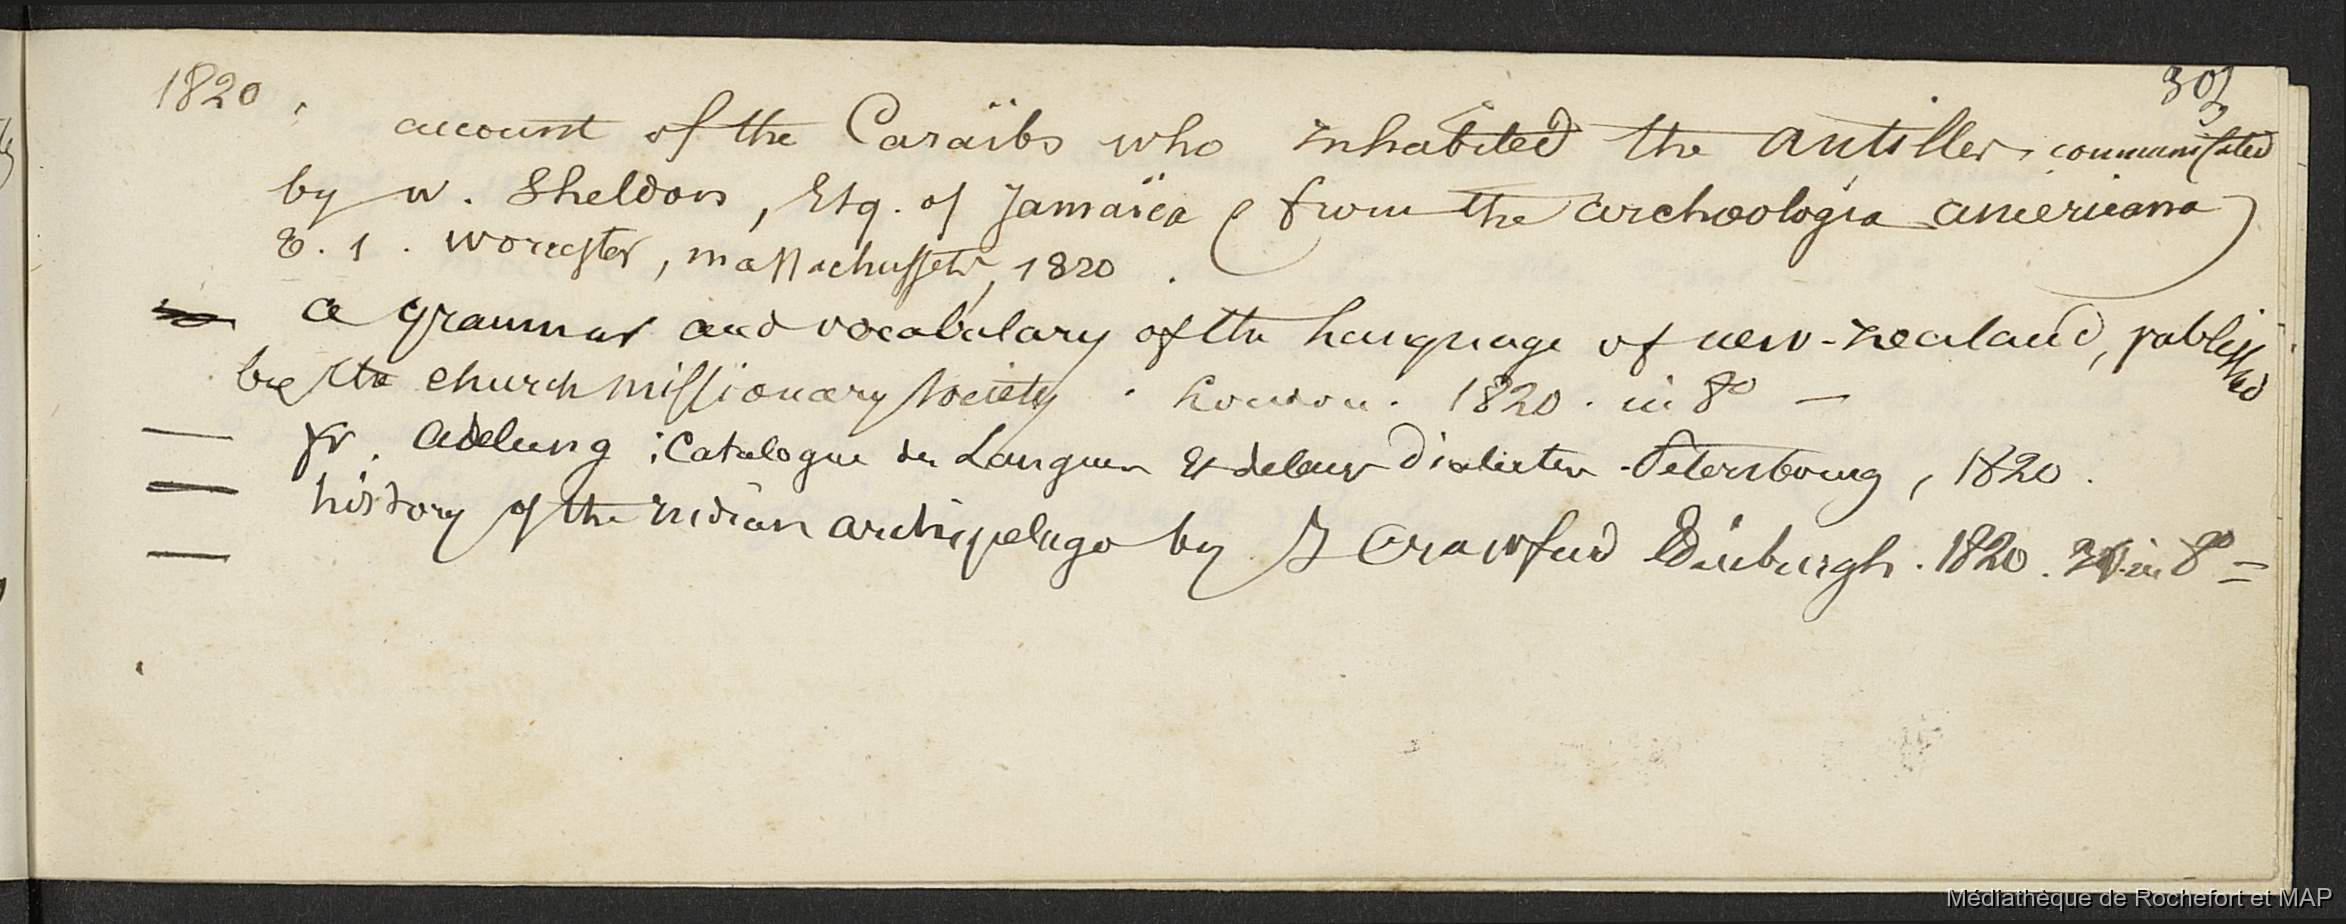 1820. 303
account of the Caraïbs who inhabited the antilles, communicated
by W. Sheldon, Esq. of Jamaïca (from the archœologia americana)
t. 1. Worcester, massachussets, 1820.
a grammar and vocabulary of the language of new-zealand, published
by the church missionary society. London. 1820. in 8° —
— fr. adelung : Catalogue des Langues et de leurs Dialectes - Petersbourg, 1820.
— history of the indian archipelago by J Crawfurd Edinburgh. 1820. 3 v. in 8° =
—
Médiathèque de Rochefort et MAP